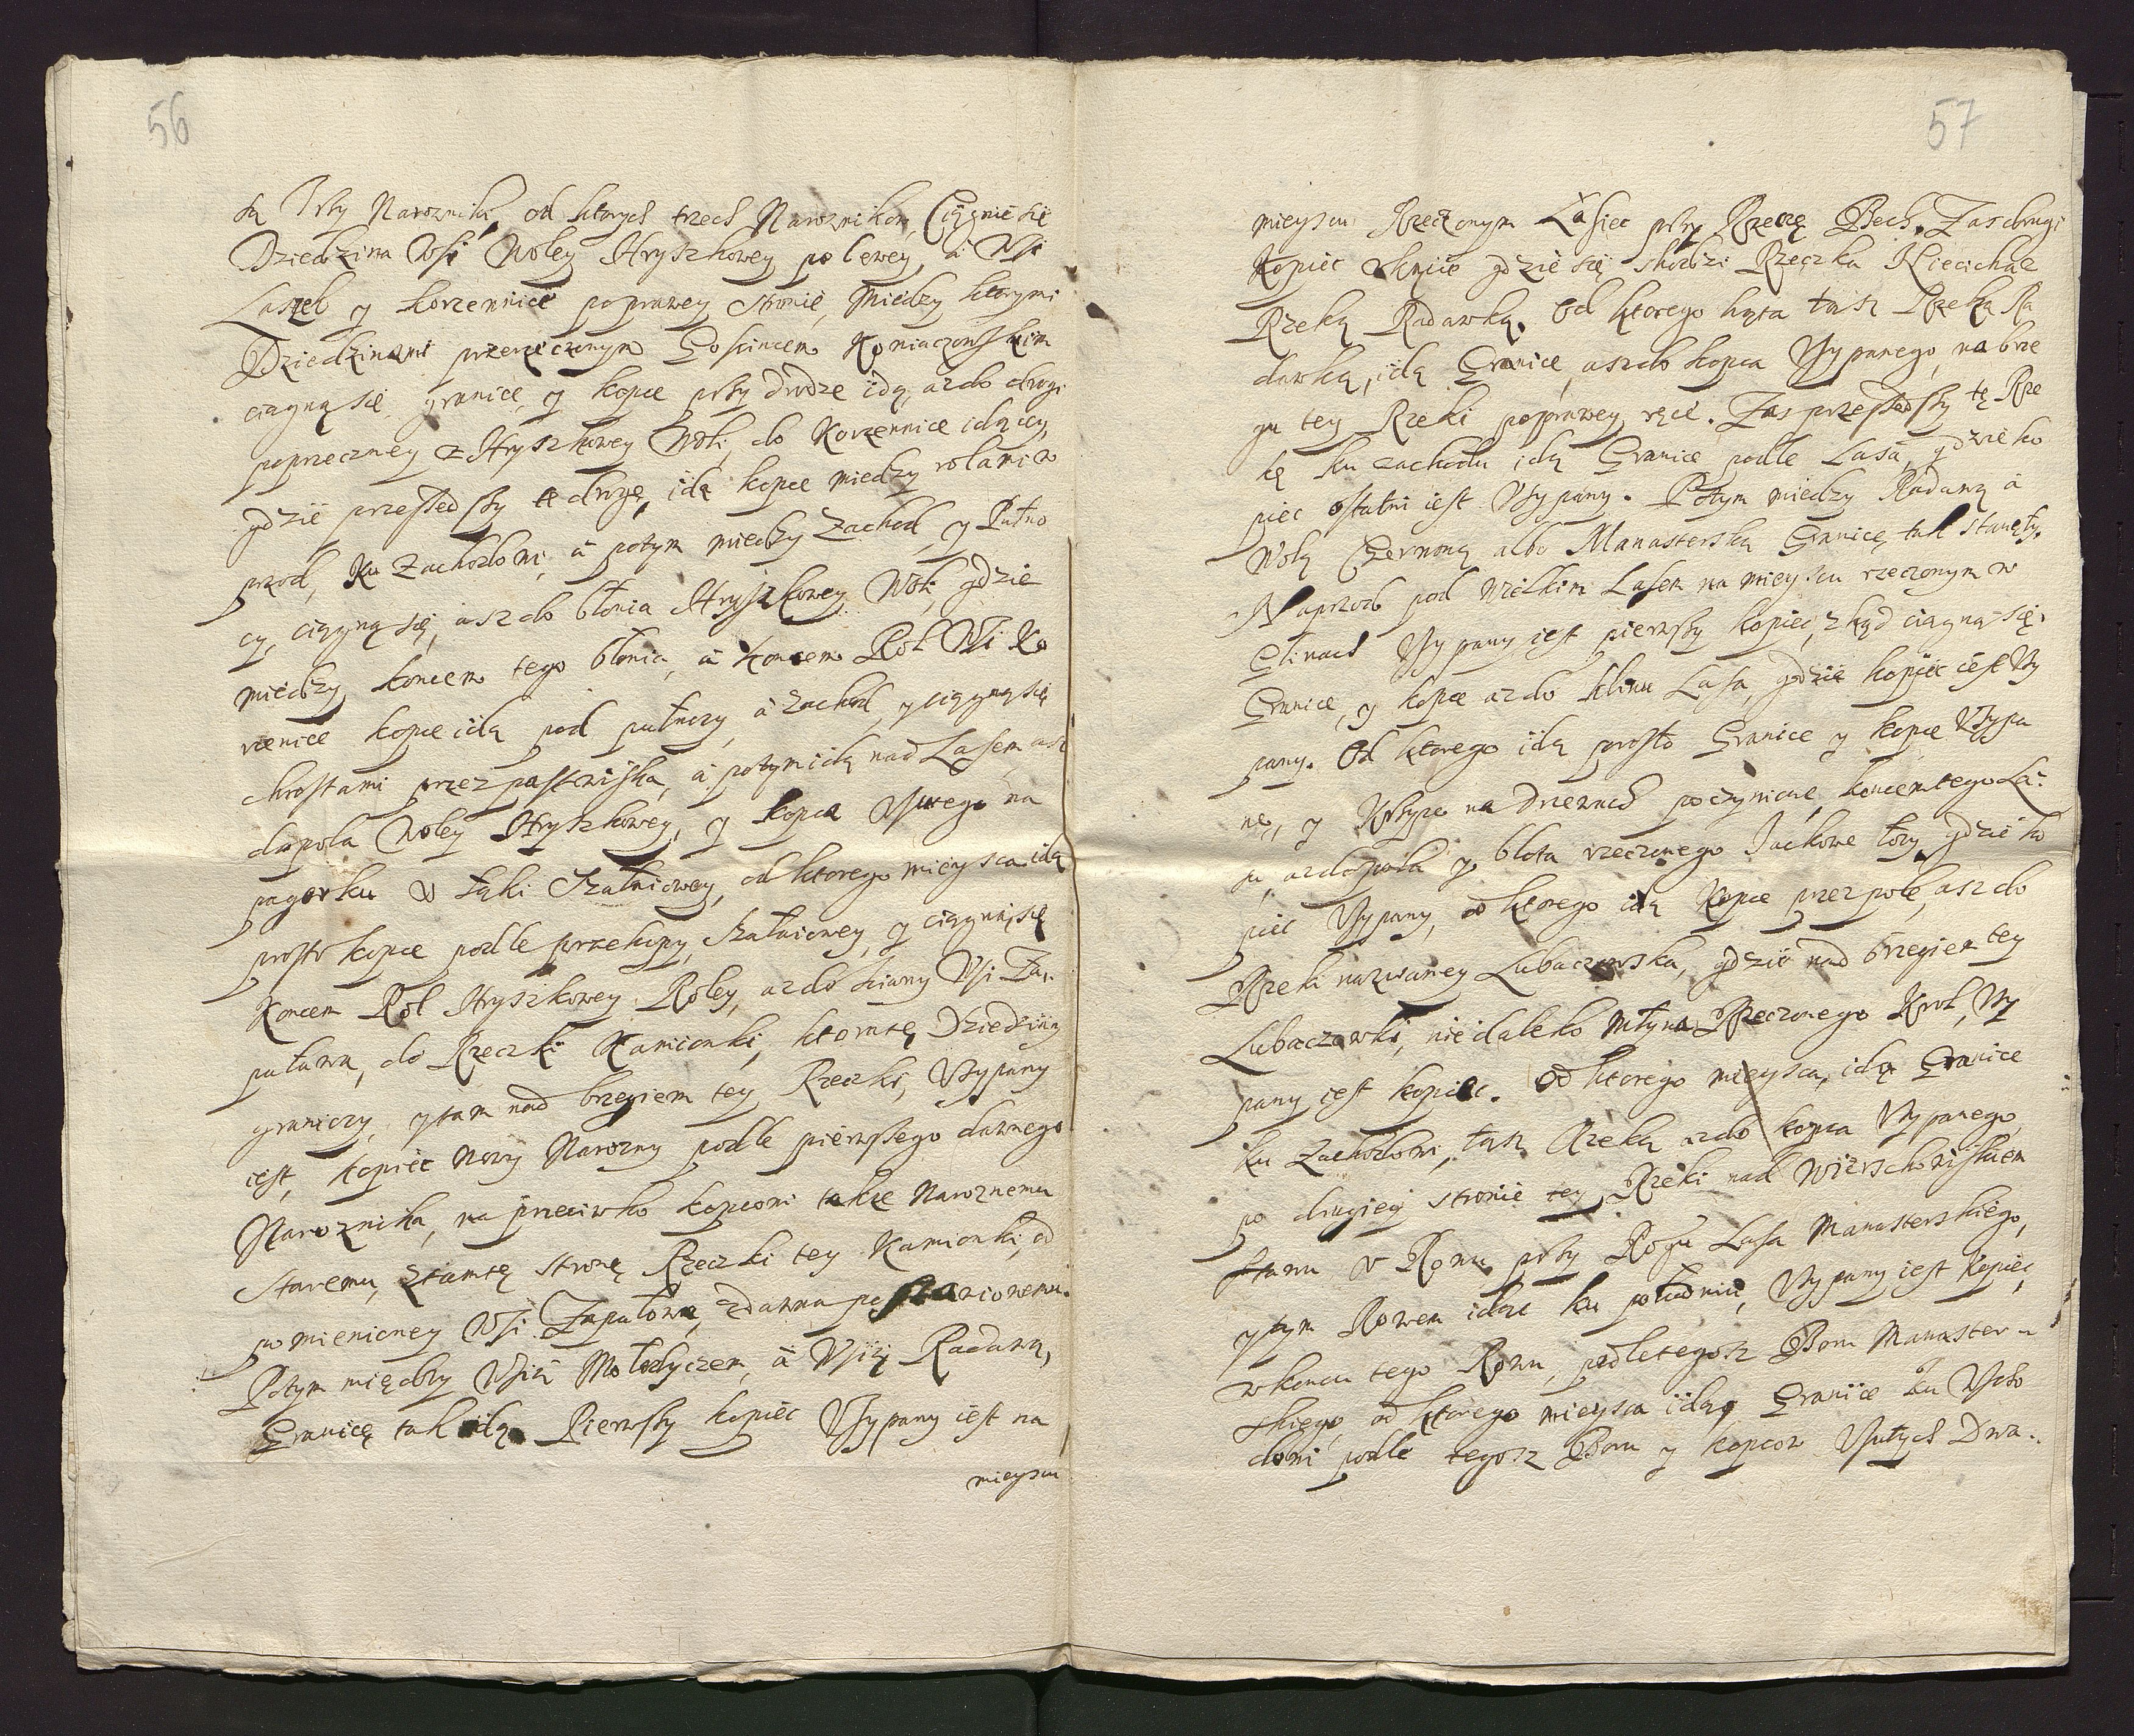 56
są Trzy Narozniki, od ktorych trzech Naroznikow, Ciągnie się
Dziedzina Wsi Woley Hryszkowey po lewey, á Wsi
Laszek y Korzennice poprawey stronie, Między ktorymi
Dziedzinami przerzeczonym Goscincem Koniaczowskim
ciągną się granice, y kopce przy drodze idą, azdo drogi
poprzeczney z Hryszkowey Woli, do Korzennice idącey,
gdzie przeszedszy tę drogę, idą kopce miedzy rolami w
przod, Ku Zachodowi, á potym miedzy Zachod, y Pułno
cy, ciągną się, asz do błonia Hryszkowey Woli, gdzie
miedzy koncem tego błonia, á Koncem Rol Wsi Ko
rzenice kopce idą pod pułnocy, á Zachod, y ciągną się
chrostami przez pastwiska, á potym idą nad Lasem, asz
do pola Woley Hryszkowey, y kopca Usutego na
pagorku v Łąki Szałniowey, od ktorego mieysca idą
prosto kopce podle przekopy, Szałniowey, y ciągną się
Koncem Rol Hryszkowey Roley, azdo sciany Wsi Za,,
pałowa, do Rzeczki Kamionki, ktora tę Dziedziny
graniczy, y tam nad brzegiem tey Rzeczki, Usypany
iest, Kopiec Nowy Narozny podle pierwszego dawnego
Naroznika, na przeciwko kopcowi także Naroznemu
Staremu, z tamtę stronę Rzeczki tey Kamionki, od
pomienioney Wsi Zapałowa, zdawna postawionemu.
Potym między Wsią Mołodyczem, á Wsią Radawą,
Granicę tak idą. Pierwszy kopiec Usypany iest na
mieyscu
57
mieyscu Rzeczonym Łasiec przy Rzecę Bech. Zas drugi
Kopiec gdzie się schodzi Rzeczka
Rzeką Radawką. Od ktorego kąta tasz Rzeką Ra
dawką, idą Granice, aszdo kopca Usypanego, na brze
gu tey Rzeki poprawey ręce. Zas przeszedszy tę Rze
kę ku zachodu idą Granice podle Lasa, gdzie ko
piec ostatni iest Usypany. Potym miedzy Radawą á
Wolą Czerwoną albo Manasterską Granicę tak stanęły.
Naprzod pod Wielkim Lasem na mieyscu rzeczonym w
Glinach Usypany iest pierwszy kopiec, zkąd ciągną się
Granice, y kopce azdo klinu Lasa, gdzie kopiec iest Usy
pany. Od ktorego idą prosto Granice y kopce Usypa
ne, y Krzyze na Drzewach poczynione, koncem tego La,,
su, azdo pola y błota rzeczonego Jackowe łozy, gdzie ko
piec Usypany, od ktorego idą Kopce przez pole, asz do
Rzeki nazwaney Lubaczowska, gdzie nad brzegiem tey
Lubaczowki, niedaleko Młyna Rzeczonego Krol, Usy
pany iest kopiec. Od ktorego mieysca, idą Granice
ku Zachodowi, tasz Rzeką azdo kopca Usypanego
po drugiey stronie tey Rzeki nad Wierschowiskiem
Stawu v Rowu, przy Rogu Lasa Manasterskiego,
y tym Rowem idąc ku południu, Usypany iest kopiec,
w koncu tego Rowu, podle tegosz Boru Manaster,,
skiego, od ktorego mieysca idą Granice ku Wscho
dowi podle tegosz Boru y kopcow Usutych Dwa,,